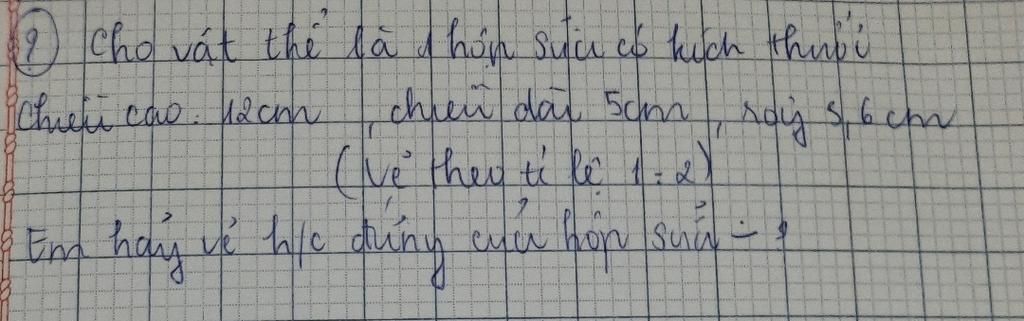 ② Cho vát thể là 1 hộp sữa có kích thước
Chiều cao. 12cm, chiều dài 5cm, rộng 3,6 cm
(Vẽ theo tỉ lệ 1:2)
Em hãy vẽ h/c đứng của hộp sữa